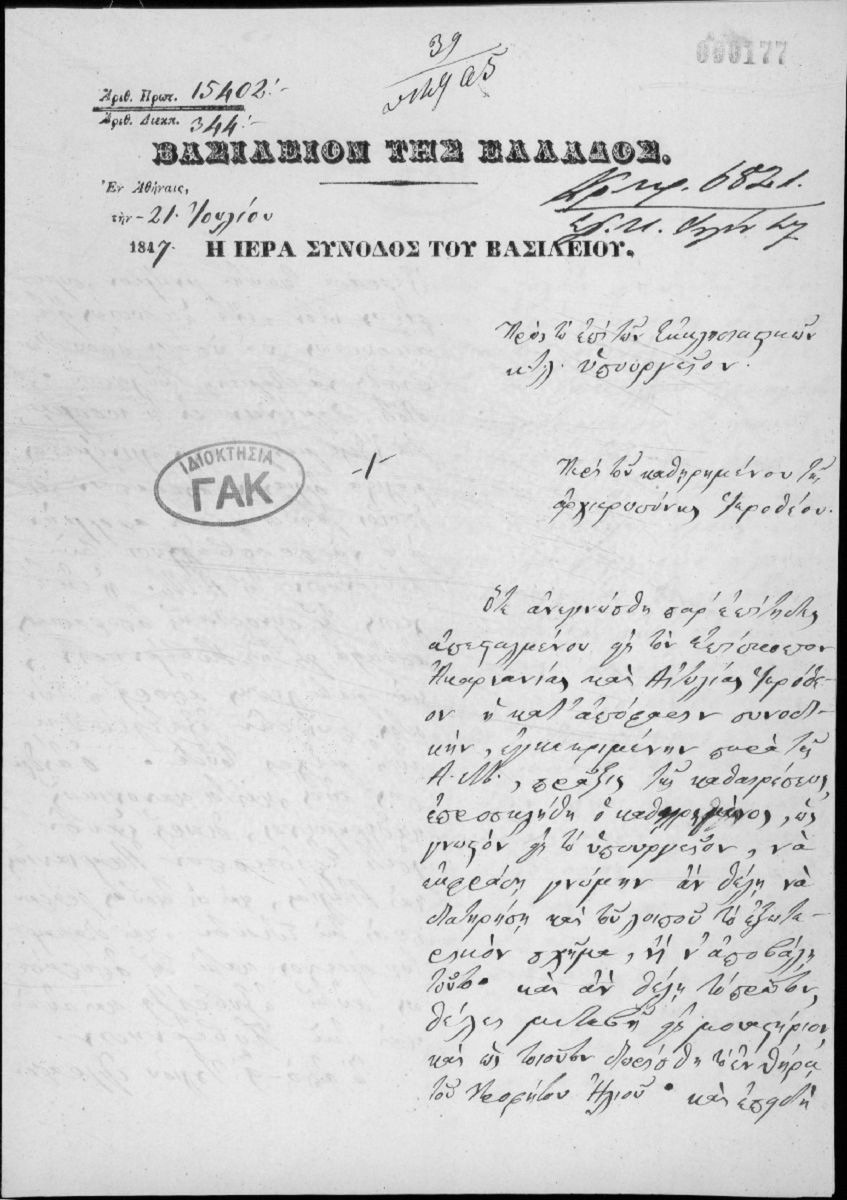 39
000177
Ἀριθ. Πρωτ. 15402
Ἀριθ. Διεκπ. 344
ΒΑΣΙΛΕΙΟΝ ΤΗΣ ΕΛΛΑΔΟΣ.
Ἐν Ἀθήναις,
τὴν 21 Ἰουλίου
1847. Η ΙΕΡΑ ΣΥΝΟΔΟΣ ΤΟΥ ΒΑΣΙΛΕΙΟΥ.
Ἀρ. πρ. 6821.
Πρὸς τὸ ἐπὶ τῶν Ἐκκλησιαστικῶν
κτλ. ὑπουργεῖον.
ΙΔΙΟΚΤΗΣΙΑ
ΓΑΚ
-1-
Περὶ τοῦ καθηρημένου τῆς
ἀρχιερωσύνης Ἱεροθέου.
Ὅτε ἀνεγνώσθη παρ' ἐπίτηδες
ἀπεσταλμένου εἰς τὸν ἐπίσκοπον
Ἀκαρνανίας καὶ Αἰτωλίας Ἱερόθε-
ον ἡ κατ' ἀπόφασιν συνοδι-
κὴν, ἐγκεκριμένην παρὰ τῆς
Α. Μ., πρᾶξις τῆς καθαιρέσεως,
ἐπροσκλήθη ὁ καθαιρεθεὶς, ὡς
γνωστὸν εἰς τὸ ὑπουργεῖον, νὰ
ἐκφράσῃ γνώμην ἂν θέλῃ νὰ
διατηρήσῃ καὶ τοῦ λοιποῦ τὸ ἐξωτε-
ρικὸν σχῆμα, ἢ ν' ἀποβάλῃ
τοῦτο· καὶ ἂν θέλῃ τὸ πρῶτον,
θέλει μεταβῆ εἰς μοναστήριον
καὶ ὡς τοιοῦτον διωρίσθη τὸ ἐν Θήρᾳ
τοῦ Προφήτου Ἠλιοῦ· καὶ ἐπειδὴ